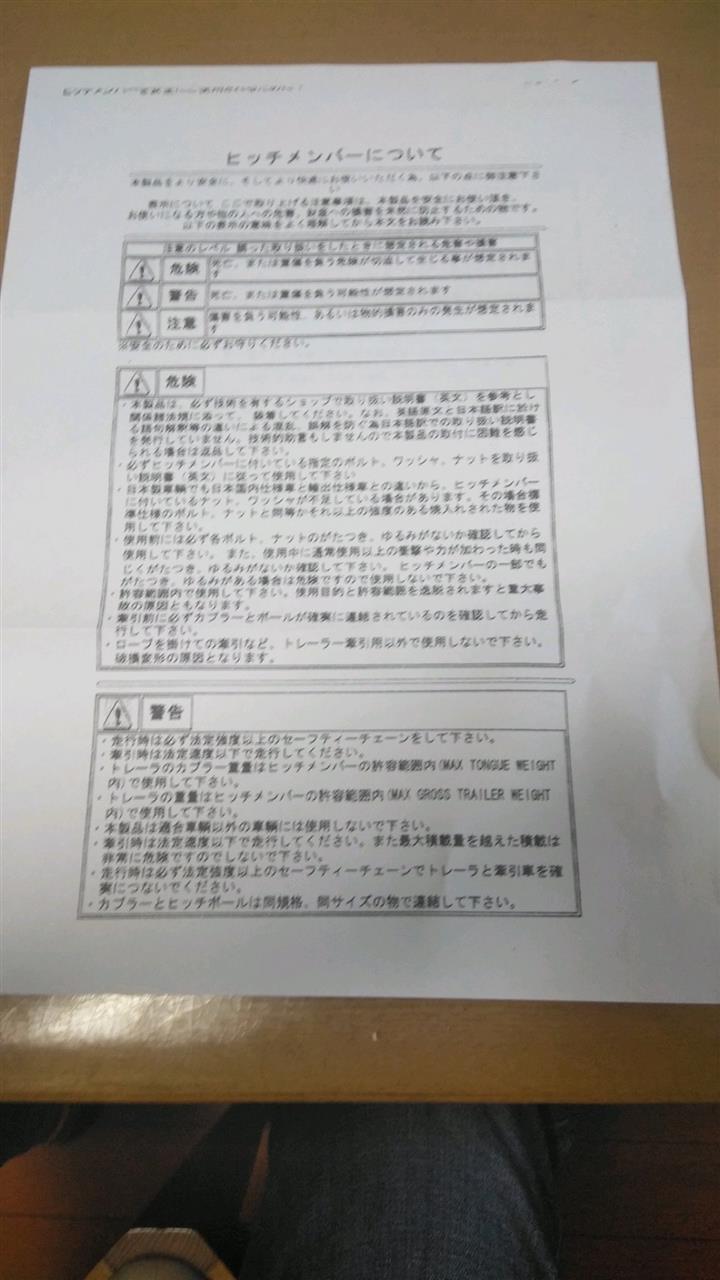 ヒッチメンバーについて
本製品をより安全に、そしてより快適にお使いいただく為、以下の点に御注意下さ
い
表示について ここで取り上げる注意事項は、本製品を安全にお使い頂き、
お使いになる方や他の人への危害、財産への損害を未然に防止するための物です。
以下の表示の意味をよく理解してから本文をお読み下さい。
注意のレベル 誤った取り扱いをしたときに想定される危害や損害
危険 死亡、または重傷を負う危険が切迫して生じる事が想定されま
す
警告 死亡、または重傷を負う可能性が想定されます
注意 傷害を負う可能性、あるいは物的損害のみの発生が想定されま
す
※安全のために必ずお守りください。
危険
・本製品は、必ず技術を有するショップで取り扱い説明書（英文）を参考とし
関係諸法規に沿って、装着してください。なお、英語原文と日本語訳に於け
る語句解釈等の違いによる混乱、誤解を防ぐ為日本語訳での取り扱い説明書
を発行していません。技術的助言もしませんので本製品の取付に困難を感じ
られる場合は返品して下さい。
・必ずヒッチメンバーに付いている指定のボルト、ワッシャ、ナットを取り扱
い説明書（英文）に従って使用して下さい
・日本製車輌でも日本国内仕様車と輸出仕様車との違いから、ヒッチメンバー
に付いているナット、ワッシャが不足している場合があります。その場合標
準仕様のボルト、ナットと同等かそれ以上の強度のある焼入れされた物を使
用して下さい。
・使用前には必ず各ボルト、ナットのがたつき、ゆるみがないか確認してから
使用して下さい。また、使用中に通常使用以上の衝撃や力が加わった時も同
じくがたつき、ゆるみがないか確認して下さい。ヒッチメンバーの一部でも
がたつき、ゆるみがある場合は危険ですので使用しないで下さい。
・許容範囲内で使用して下さい。使用目的と許容範囲を逸脱されますと重大事
故の原因ともなります。
・牽引前に必ずカプラーとボールが確実に連結されているのを確認してから走
行して下さい。
・ロープを掛けての牽引など、トレーラー牽引用以外で使用しないで下さい。
破損変形の原因となります。
警告
・走行時は必ず法定強度以上のセーフティーチェーンをして下さい。
・牽引時は法定速度以下で走行してください。
・トレーラのカプラー重量はヒッチメンバーの許容範囲内(MAX TONGUE WEIGHT
内)で使用して下さい。
・トレーラの重量はヒッチメンバーの許容範囲内(MAX GROSS TRAILER WEIGHT
内)で使用して下さい。
・本製品は適合車輌以外の車輌には使用しないで下さい。
・牽引時は法定速度以下で走行してください。また最大積載量を越えた積載は
非常に危険ですのでしないで下さい。
・走行時は必ず法定強度以上のセーフティーチェーンでトレーラと牽引車を確
実につないでください。
・カプラーとヒッチボールは同規格、同サイズの物で連結して下さい。